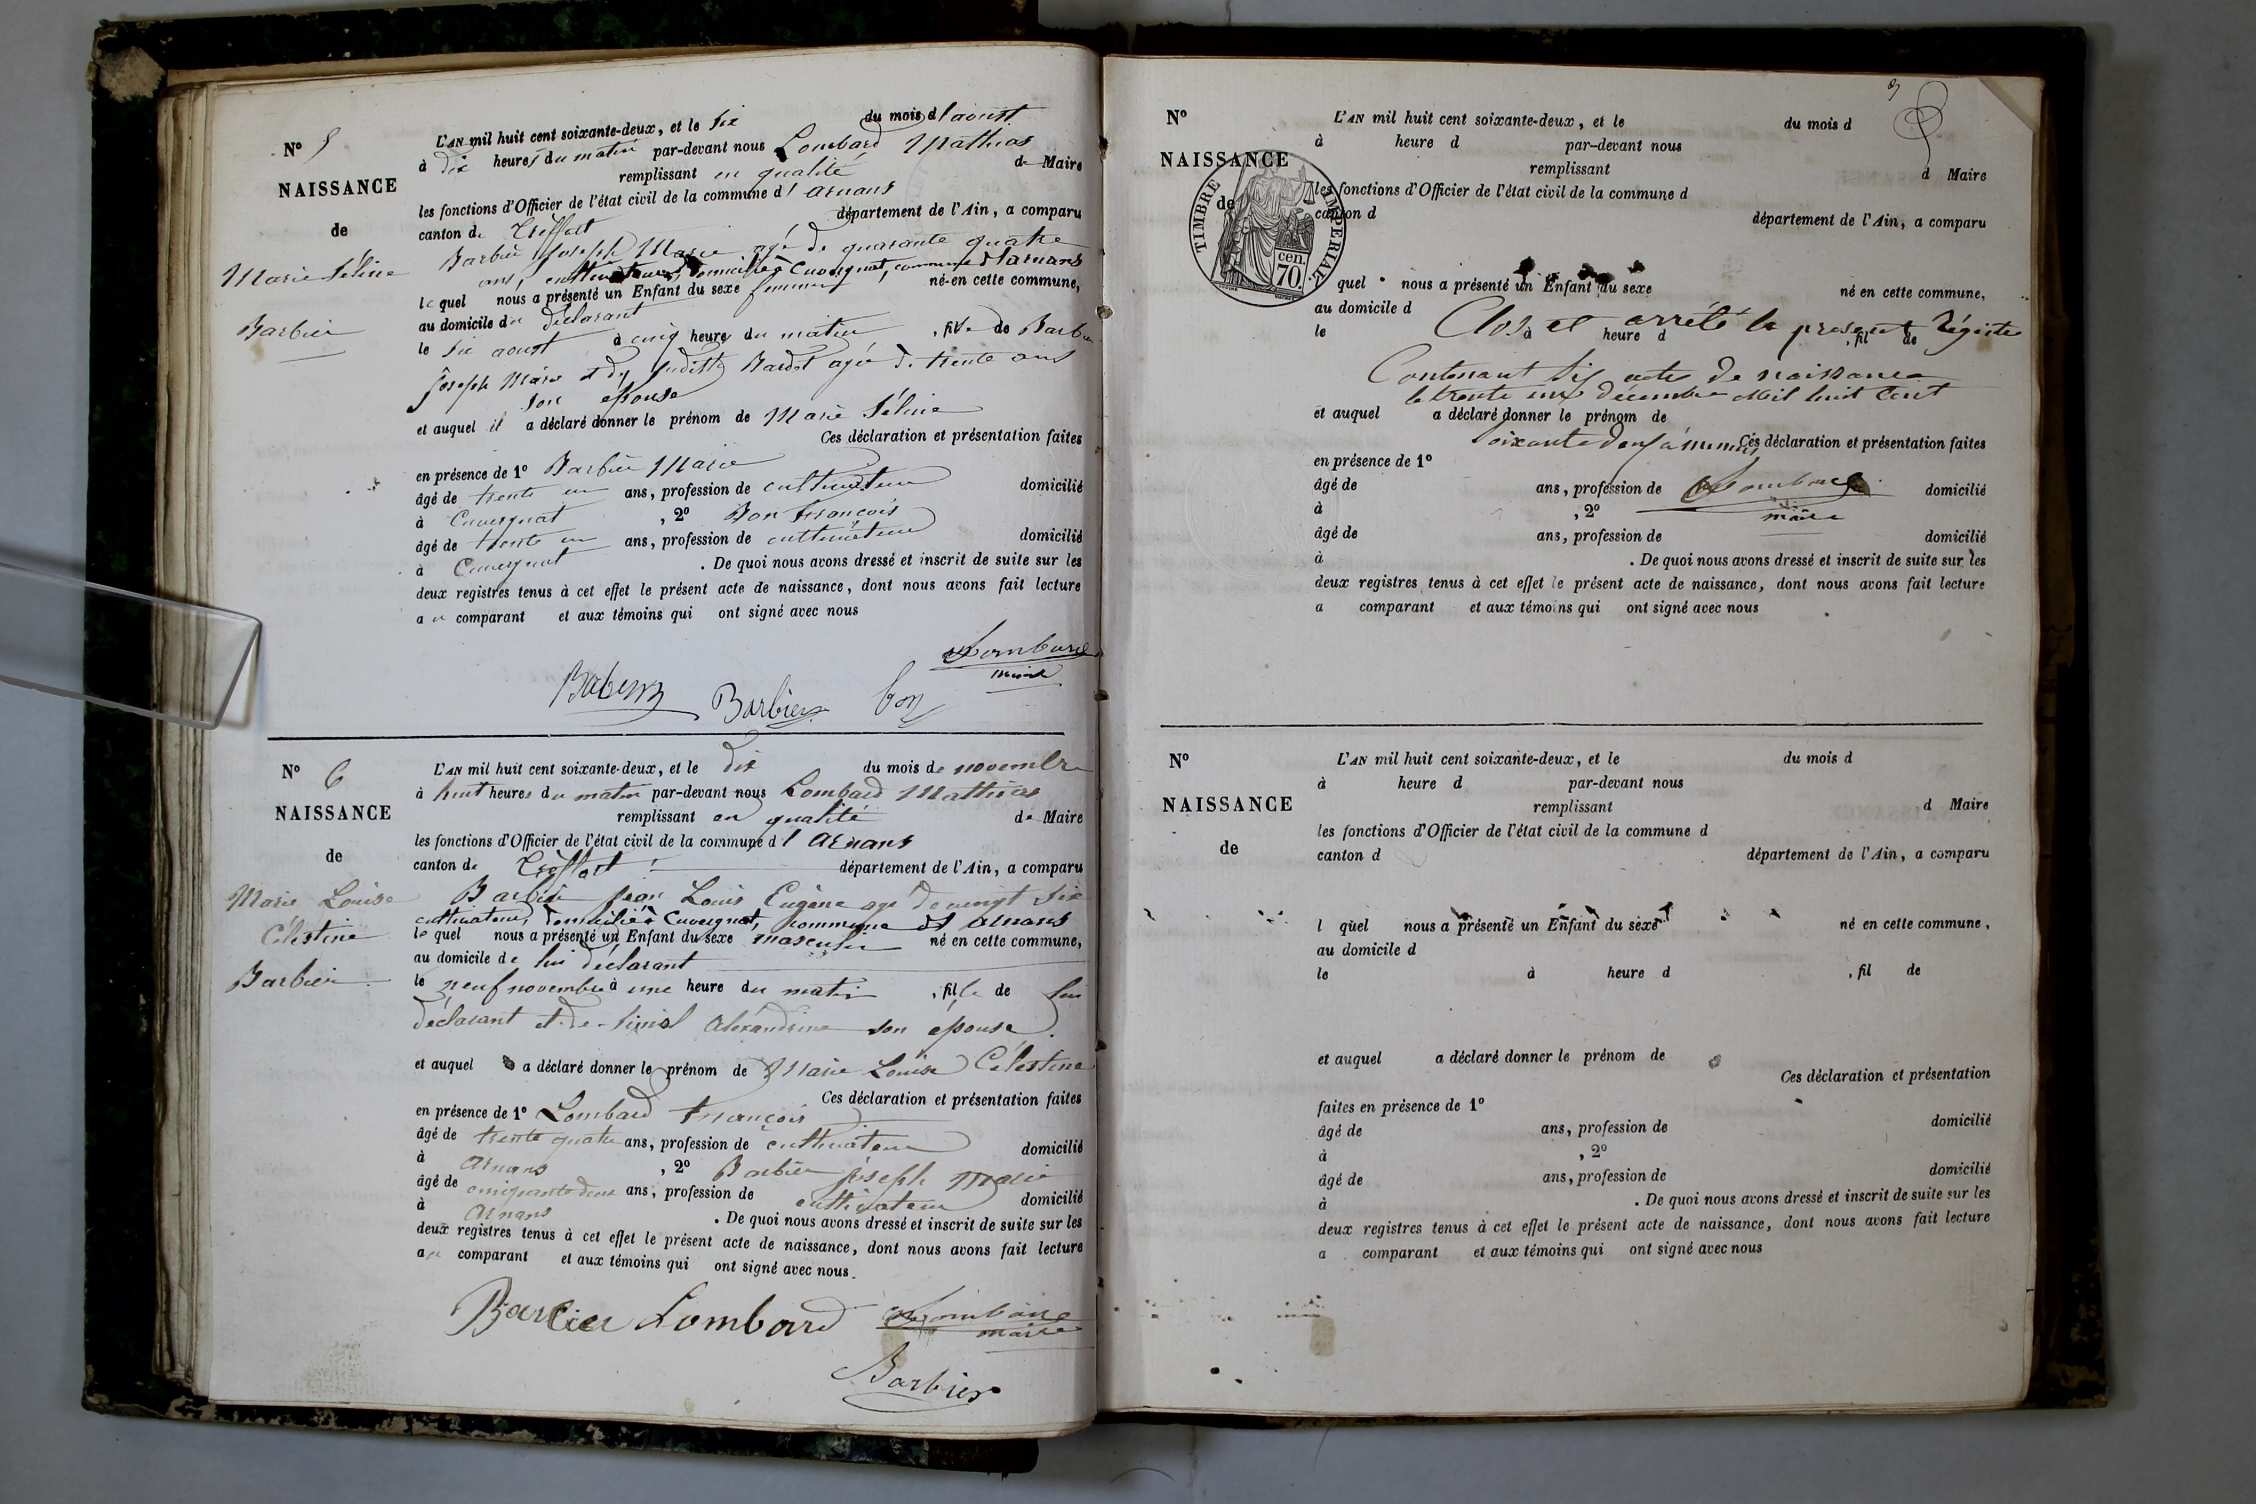 N° 5
NAISSANCE
de
Marie Séline
Barbier
L'AN mil huit cent soixante-deux, et le six du mois d'aoust
à dix heures du matin par-devant nous Lombard Mathias
remplissant en qualité de Maire
les fonctions d'Officier de l'état civil de la commune d'Arnans
canton de Treffort département de l'Ain, a comparu
Barbier Joseph Marie agé de quarante quatre
ans, cultivateur, domicilié à Cuvergnat, commune d'Arnans
le quel nous a présenté un Enfant du sexe féminin, né en cette commune,
au domicile du déclarant
le six aoust à cinq heures du matin, fille de Barbier
Joseph Marie et de Judith Bardet agée de trente ans
son épouse
et auquel il a déclaré donner le prénom de Marie Séline
Ces déclaration et présentation faites
en présence de 1° Barbier Marie
âgé de trente un ans, profession de cultivateur domicilié
à Cuvergnat, 2° Bon François
âgé de trente un ans, profession de cultivateur domicilié
à Cuvergnat. De quoi nous avons dressé et inscrit de suite sur les
deux registres tenus à cet effet le présent acte de naissance, dont nous avons fait lecture
au comparant et aux témoins qui ont signé avec nous
Lombard
maire
Barbier Bon
N° 6
NAISSANCE
de
Marie Louise
Célestine
Barbier
L'AN mil huit cent soixante-deux, et le dix du mois de novembre
à huit heures du matin par-devant nous Lombard Mathias
remplissant en qualité de Maire
les fonctions d'Officier de l'état civil de la commune d'Arnans
canton de Treffort département de l'Ain, a comparu
Barbier Jean Louis Eugène agé de vingt six
cultivateur, domicilié à Cuvergnat, commune d'Arnans
le quel nous a présenté un Enfant du sexe masculin né en cette commune,
au domicile de lui déclarant
le neuf novembre à une heure du matin, fille de lui
déclarant et de Alexandrine son épouse
et auquel a déclaré donner le prénom de Marie Louise Célestine
Ces déclaration et présentation faites
en présence de 1° Lombard François
âgé de trente quatre ans, profession de cultivateur domicilié
à Arnans, 2° Barbier Joseph Marie
âgé de cinquante deux ans, profession de cultivateur domicilié
à Arnans. De quoi nous avons dressé et inscrit de suite sur les
deux registres tenus à cet effet le présent acte de naissance, dont nous avons fait lecture
au comparant et aux témoins qui ont signé avec nous.
Barbier Lombard Lombard
maire
Barbier
N°
NAISSANCE
de
TIMBRE IMPERIAL
cen.
70.
L'AN mil huit cent soixante-deux, et le du mois d
à heure d par-devant nous
remplissant d Maire
les fonctions d'Officier de l'état civil de la commune d
canton d département de l'Ain, a comparu
quel nous a présenté un Enfant du sexe né en cette commune,
au domicile d
le à heure d, fil de
Clos et arrêté le présent Régistre
Contenant six actes de naissance
le trente un décembre Mil huit Cent
et auquel a déclaré donner le prénom de
soixante deux à Arnans
Ces déclaration et présentation faites
en présence de 1°
âgé de ans, profession de domicilié
Lombard
à, 2°
maire
âgé de ans, profession de domicilié
à. De quoi nous avons dressé et inscrit de suite sur les
deux registres tenus à cet effet le présent acte de naissance, dont nous avons fait lecture
a comparant et aux témoins qui ont signé avec nous
N°
NAISSANCE
de
L'AN mil huit cent soixante-deux, et le du mois d
à heure d par-devant nous
remplissant d Maire
les fonctions d'Officier de l'état civil de la commune d
canton d département de l'Ain, a comparu
l quel nous a présenté un Enfant du sexe né en cette commune,
au domicile d
le à heure d, fil de
et auquel a déclaré donner le prénom de
Ces déclaration et présentation
faites en présence de 1°
âgé de ans, profession de domicilié
à, 2°
âgé de ans, profession de domicilié
à. De quoi nous avons dressé et inscrit de suite sur les
deux registres tenus à cet effet le présent acte de naissance, dont nous avons fait lecture
a comparant et aux témoins qui ont signé avec nous